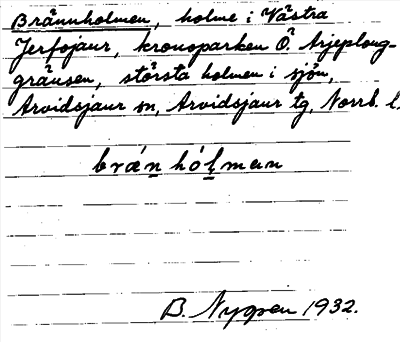 Brännholmen, holme i Västra
Jerfojaur, kronoparken Ö. Arjeploug-
gränsen, största holmen i sjön,
Arvidsjaur sn, Arvidsjaur tg, Norrb. l.
bræ´n hó l man
B. Nygren 1932.